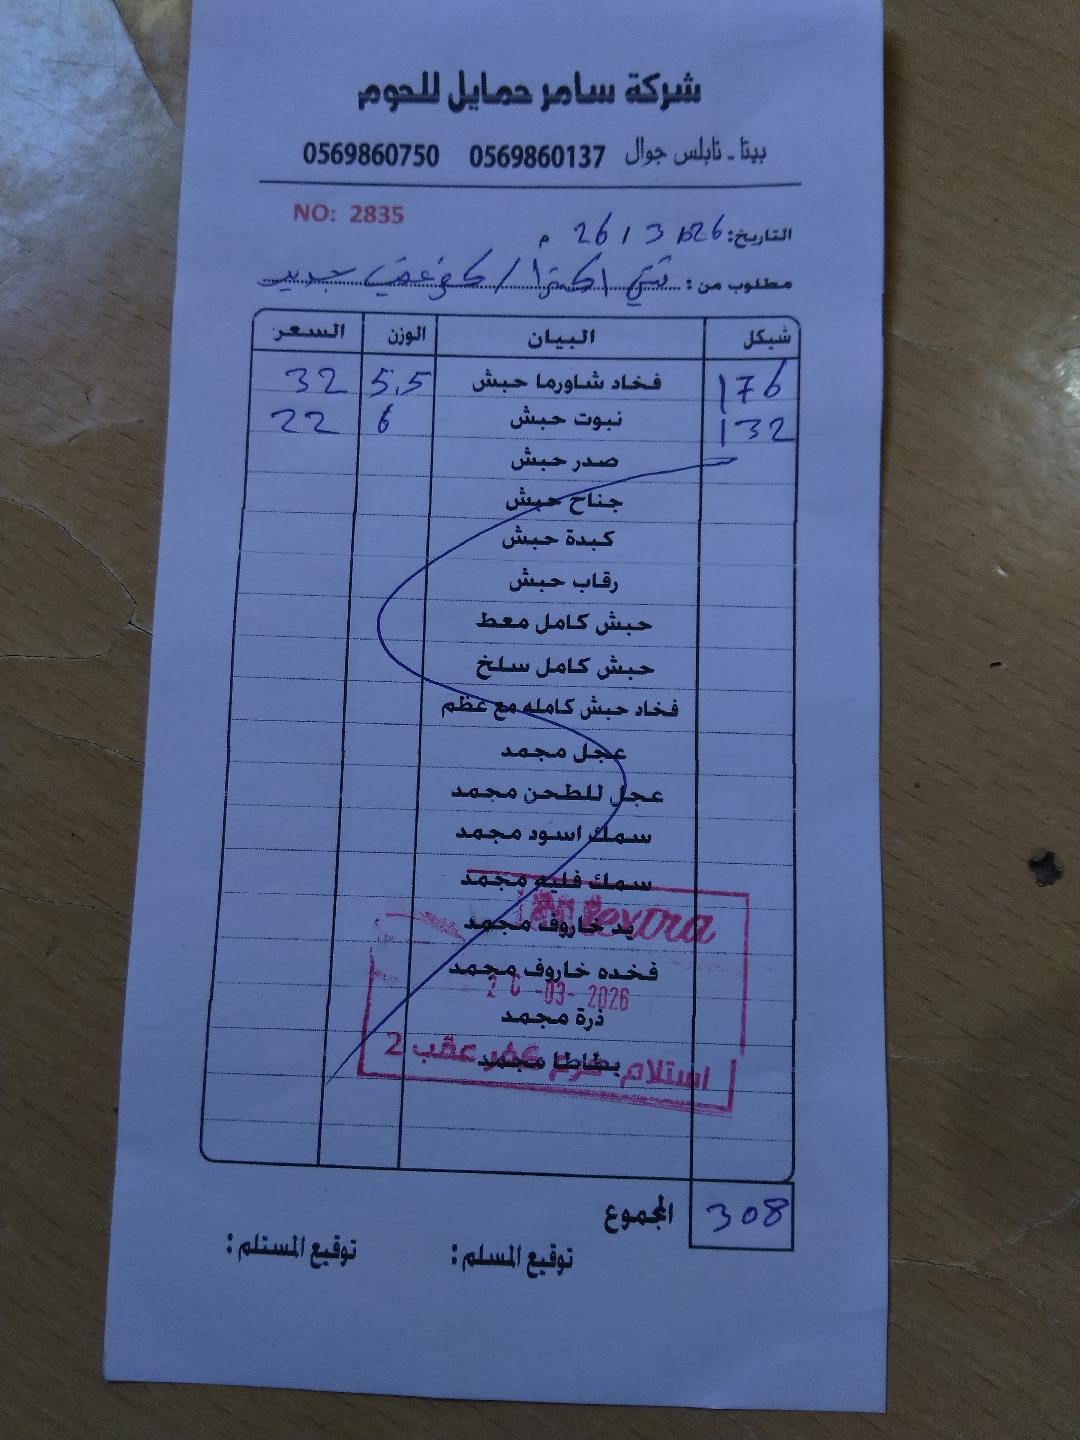 شركة سامر حمايل للحوم
بيتا - نابلس جوال 0569860137 0569860750
NO: 2835
التاريخ: 26 / 3 / 2026 م
مطلوب من: اكسترا / كفر عقب جديد
شيكل البيان الوزن السعر
176 فخاد شاورما حبش 5.5 32
132 نبوت حبش 6 22
صدر حبش
جناح حبش
كبدة حبش
رقاب حبش
حبش كامل معط
حبش كامل سلخ
فخاد حبش كامله مع عظم
عجل مجمد
عجل للطحن مجمد
سمك اسود مجمد
سمك فليه مجمد
يد خاروف مجمد
extra
فخده خاروف مجمد
26 -03- 2026
ذرة مجمد
بطاطا مجمد
استلام فرع كفر عقب 2
المجموع 308
توقيع المسلم : توقيع المستلم :